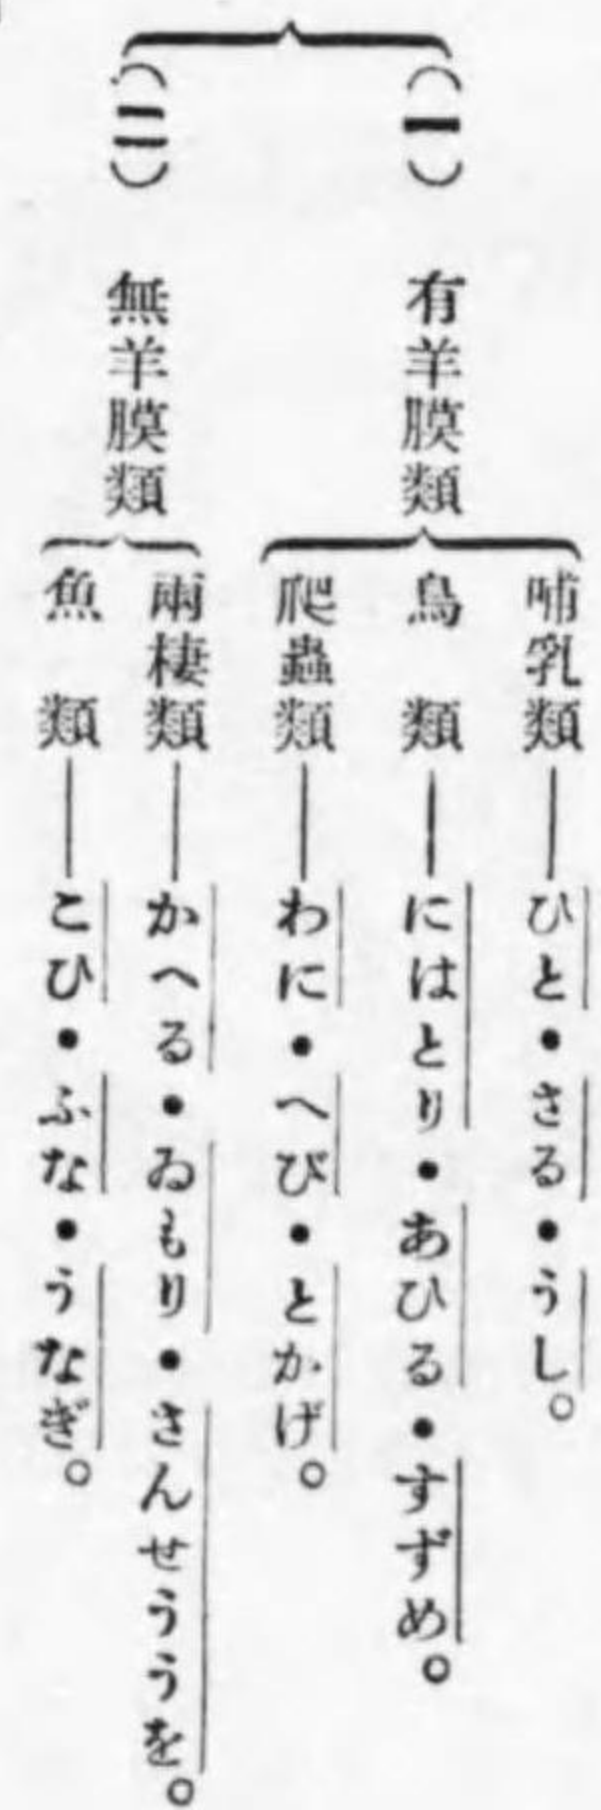 (一) 有羊膜類
哺乳類――ひと・さる・うし。
鳥類――にはとり・あひる・すずめ。
爬蟲類――わに・へび・とかげ。
(二) 無羊膜類
兩棲類――かへる・ゐもり・さんせううを。
魚類――こひ・ふな・うなぎ。